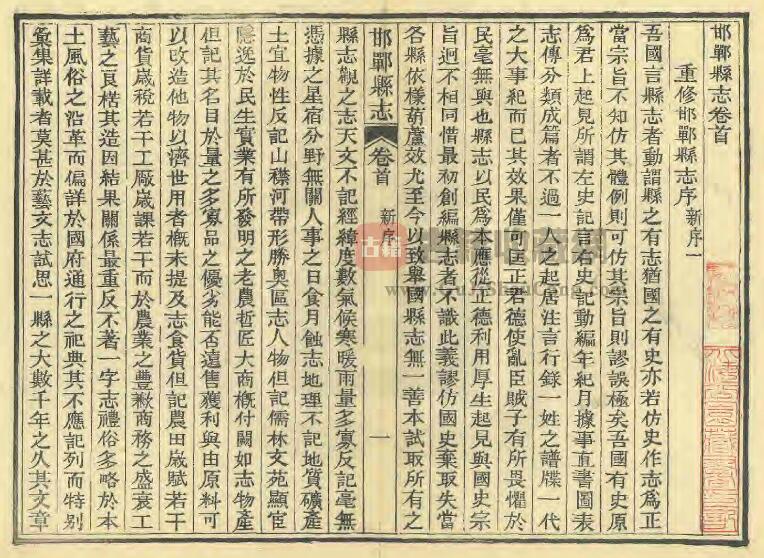 邯鄲縣志卷首
重修邯鄲縣志序 新序一
吾國言縣志者動謂縣之有志猶國之有史亦若仿史作志爲正
當宗旨不知仿其體例則可仿其宗旨則謬誤極矣吾國有史原
爲君上起見所謂左史記言右史記動編年紀月據事直書圖表
志傳分類成篇者不過一人之起居注言行錄一姓之譜牒一代
之大事紀而已其效果僅一匡正若德使亂臣賊子有所畏懼於
民毫無與也縣志以民爲本應從正德利用厚生起見與國史宗
旨迥不相同惜最初創編縣志者不識此義謬仿國史棄取失當
各縣依樣葫蘆效尤至今以致舉國縣志無一善本試取所有之
邯鄲縣志 卷首 新序 一
縣志觀之志天文不記經緯度數氣候寒暖雨量多寡反記毫無
憑據之星宿分野無關人事之日食月蝕志地理不記地質礦產
土宜物性反記山襟河帶形勝奧區志人物但記儒林文苑顯宦
隱逸於民生實業有所發明之老農哲匠大商概付闕如志物產
但記其名目於量之多寡品之優劣能否遠售獲利與由原料可
以改造他物以濟世用者概未提及志食貨但記農田歲賦若干
商貨歲稅若干工廠歲課若干而於農業之豐歉商務之盛衰工
藝之良楛其造因結果關係最重反不著一字志禮俗多略於本
土風俗之沿革而偏詳於國府通行之祀典其不應記列而特別
彙集詳載者莫甚於藝文志試思一縣之大數千年之久其文章